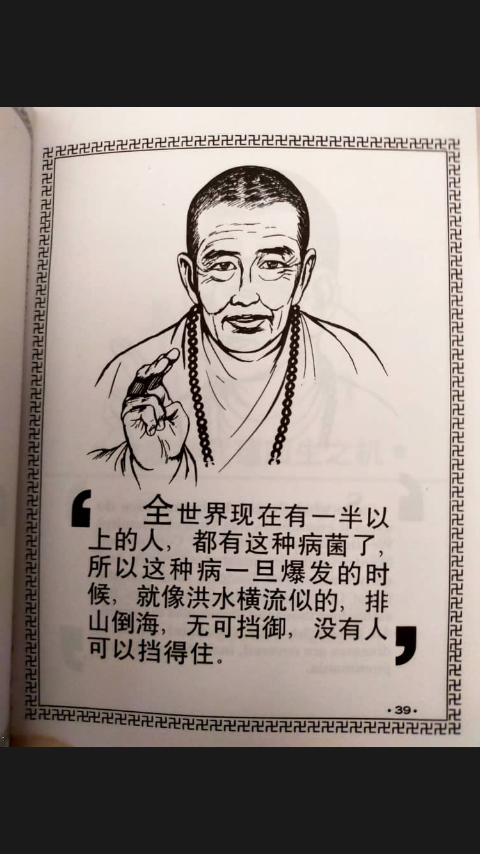 全世界现在有一半以
上的人，都有这种病菌了，
所以这种病一旦爆发的时
候，就像洪水横流似的，排
山倒海，无可挡御，没有人
可以挡得住。
·39·